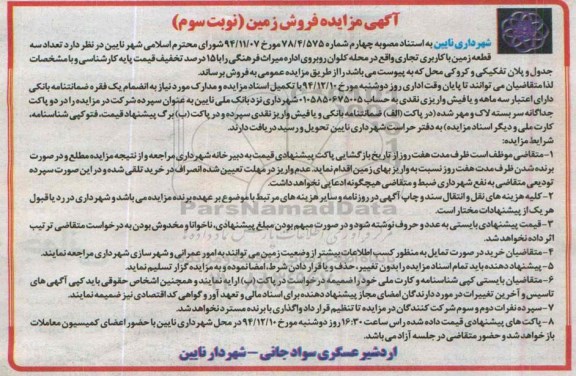 آگهی مزایده فروش زمین (نوبت سوم)
شهرداری نایین به استناد مصوبه چهارم شماره ۷۸/۴/۵۷۵ مورخ ۹۴/۱۱/۰۷ شورای محترم اسلامی شهر نایین در نظر دارد تعداد سه
قطعه زمین با کاربری تجاری واقع در محله کلوان روبروی اداره میراث فرهنگی را با ۱۵ درصد تخفیف قیمت پایه کارشناسی و با مشخصات
جدول و پلان تفکیکی و کروکی محل که به پیوست می‌باشد را از طریق مزایده عمومی به فروش برساند.
لذا متقاضیان می توانند تا پایان وقت اداری روز دوشنبه مورخ ۹۴/۱۲/۱۰ با تکمیل اسناد مزایده و مدارک مورد نیاز به انضمام یک فقره ضمانتنامه بانکی
دارای اعتبار سه ماهه و یا فیش واریزی نقدی به حساب ۰۱۰۵۸۵۰۶۷۵۰۰۵ شهرداری نزد بانک ملی نایین به عنوان سپرده شرکت در مزایده را در دو پاکت
جداگانه سر بسته لاک و مهر شده (در پاکت (الف) ضمانتنامه بانکی و یا فیش واریز نقدی سپرده و در پاکت (ب) برگ پیشنهاد قیمت، فتوکپی شناسنامه،
کارت ملی و دیگر اسناد مزایده) به دفتر حراست شهرداری نایین تحویل و رسید دریافت دارند.
شرایط مزایده:
۱- متقاضی موظف است ظرف مدت هفت روز از تاریخ بازگشایی پاکت پیشنهادی قیمت به دبیرخانه شهرداری مراجعه و از نتیجه مزایده مطلع و در صورت
برنده شدن ظرف مدت هفت روز نسبت به واریز بهای زمین اقدام نماید. عدم واریز در مهلت تعیین شده انصراف در خرید تلقی شده و در این صورت سپرده
تودیعی متقاضی به نفع شهرداری ضبط و متقاضی هیچگونه ادعایی نخواهد داشت.
۲- کلیه هزینه های نقل و انتقال سند و چاپ آگهی در روزنامه و سایر هزینه های مرتبط با موضوع بر عهده برنده مزایده می باشد و شهرداری در رد یا قبول
هر یک از پیشنهادات مختار است.
۳- قیمت پیشنهادی بایستی به عدد و حروف نوشته شود و در صورت مبهم بودن مبلغ پیشنهادی، ناخوانا و مخدوش بودن به درخواست متقاضی ترتیب
اثر داده نخواهد شد.
۴- متقاضیان خرید در صورت تمایل به منظور کسب اطلاعات بیشتر از وضعیت زمین می توانند به امور عمرانی و شهرسازی شهرداری مراجعه نمایند.
۵- پیشنهاد دهنده باید تمام اسناد مزایده را بدون تغییر، حذف و یا قرار دادن شرط، امضا نموده و به مزایده گزار تسلیم نماید.
۶- متقاضیان بایستی کپی شناسنامه و کارت ملی خود را ضمیمه درخواست در پاکت (ب) ارایه نمایند و همچنین اشخاص حقوقی باید کپی آگهی های
تاسیس و آخرین تغییرات در مورد دارندگان امضای مجاز پیشنهاد دهنده برای اسناد مالی و تعهد آور و گواهی کد اقتصادی نیز ضمیمه نمایند.
۷- سپرده نفرات دوم و سوم شرکت کنندگان در مزایده تا تنظیم قرار داد واگذاری با برنده مسترد نخواهد شد.
۸- پاکت های پیشنهادی قیمت داده شده راس ساعت ۱۶:۳۰ روز دوشنبه مورخ ۹۴/۱۲/۱۰ در محل شهرداری نایین با حضور اعضای کمیسیون معاملات
باز خواهد شد و حضور متقاضی در جلسه آزاد می باشد.
اردشیر عسگری سواد جانی - شهردار نایین
ParsNamadData